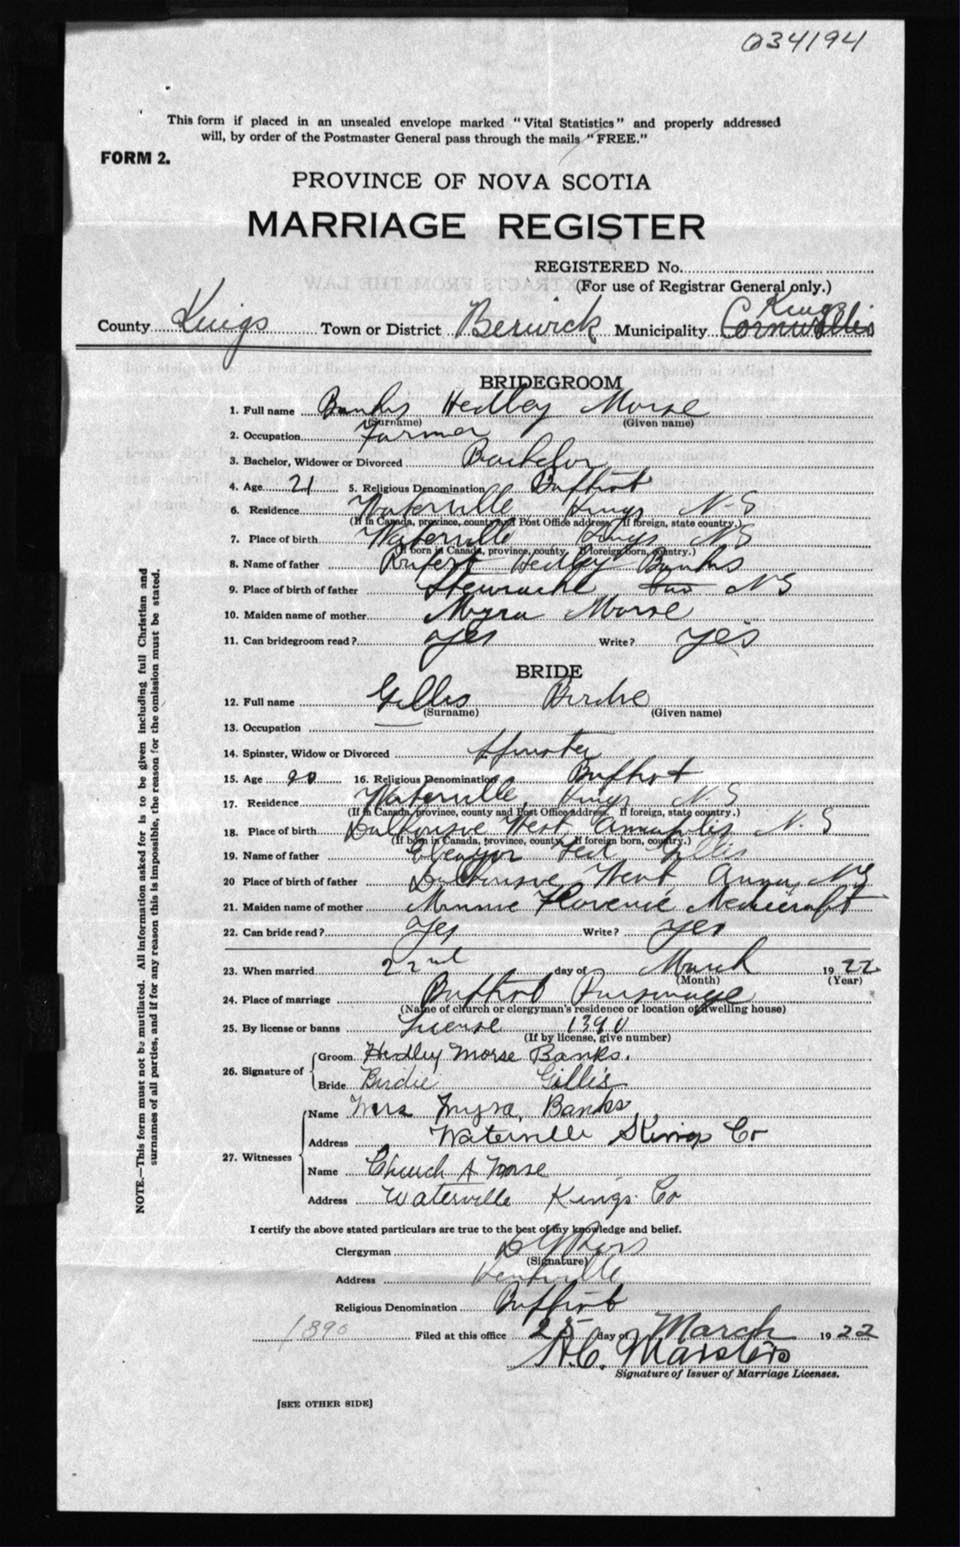 034194
This form if placed in an unsealed envelope marked "Vital Statistics" and properly addressed
will, by order of the Postmaster General pass through the mails "FREE."
FORM 2.
PROVINCE OF NOVA SCOTIA
MARRIAGE REGISTER
REGISTERED No.
(For use of Registrar General only.)
Kings
County Kings Town or District Berwick Municipality Cornwallis
BRIDEGROOM
1. Full name Banks Hedley Morse
(Surname) (Given name)
2. Occupation Farmer
3. Bachelor, Widower or Divorced Bachelor
4. Age 21 5. Religious Denomination Baptist
6. Residence Waterville Kings N-S
(If in Canada, province, county and Post Office address. If foreign, state country.)
7. Place of birth Waterville Kings NS
(If born in Canada, province, county. If foreign born, country.)
8. Name of father Rupert Hedley Banks
9. Place of birth of father NS
10. Maiden name of mother Myra Morse
11. Can bridegroom read? yes Write? yes
BRIDE
12. Full name Gillis Birdie
(Surname) (Given name)
13. Occupation
14. Spinster, Widow or Divorced Spinster
15. Age 20 16. Religious Denomination Baptist
17. Residence Waterville, Kings N S
(If in Canada, province, county and Post Office address. If foreign, state country.)
18. Place of birth Dalhousie West, Annapolis N. S
(If born in Canada, province, county. If foreign born, country.)
19. Name of father Ebenezer Gillis
20 Place of birth of father Dalhousie West, Anna, NS
21. Maiden name of mother Minnie Florence Medicraft
22. Can bride read? Yes Write? yes
23. When married 22nd day of March 1922
(Month) (Year)
24. Place of marriage Baptist Parsonage
(Name of church or clergyman's residence or location of dwelling house)
25. By license or banns License 1390
(If by license, give number)
26. Signature of Groom Hedley Morse Banks.
Bride Birdie Gillis
27. Witnesses Name Mrs Myra, Banks
Address Waterville Kings Co
Name Church A Morse
Address Waterville Kings Co
I certify the above stated particulars are true to the best of my knowledge and belief.
Clergyman
(Signature)
Address Kentville
Religious Denomination Baptist
1390 Filed at this office 25 day of March 1922
H.C. Marsters
Signature of Issuer of Marriage Licenses.
[SEE OTHER SIDE]
NOTE.—This form must not be mutilated. All information asked for is to be given including full Christian and
surnames of all parties, and if for any reason this is impossible, the reason for the omission must be stated.